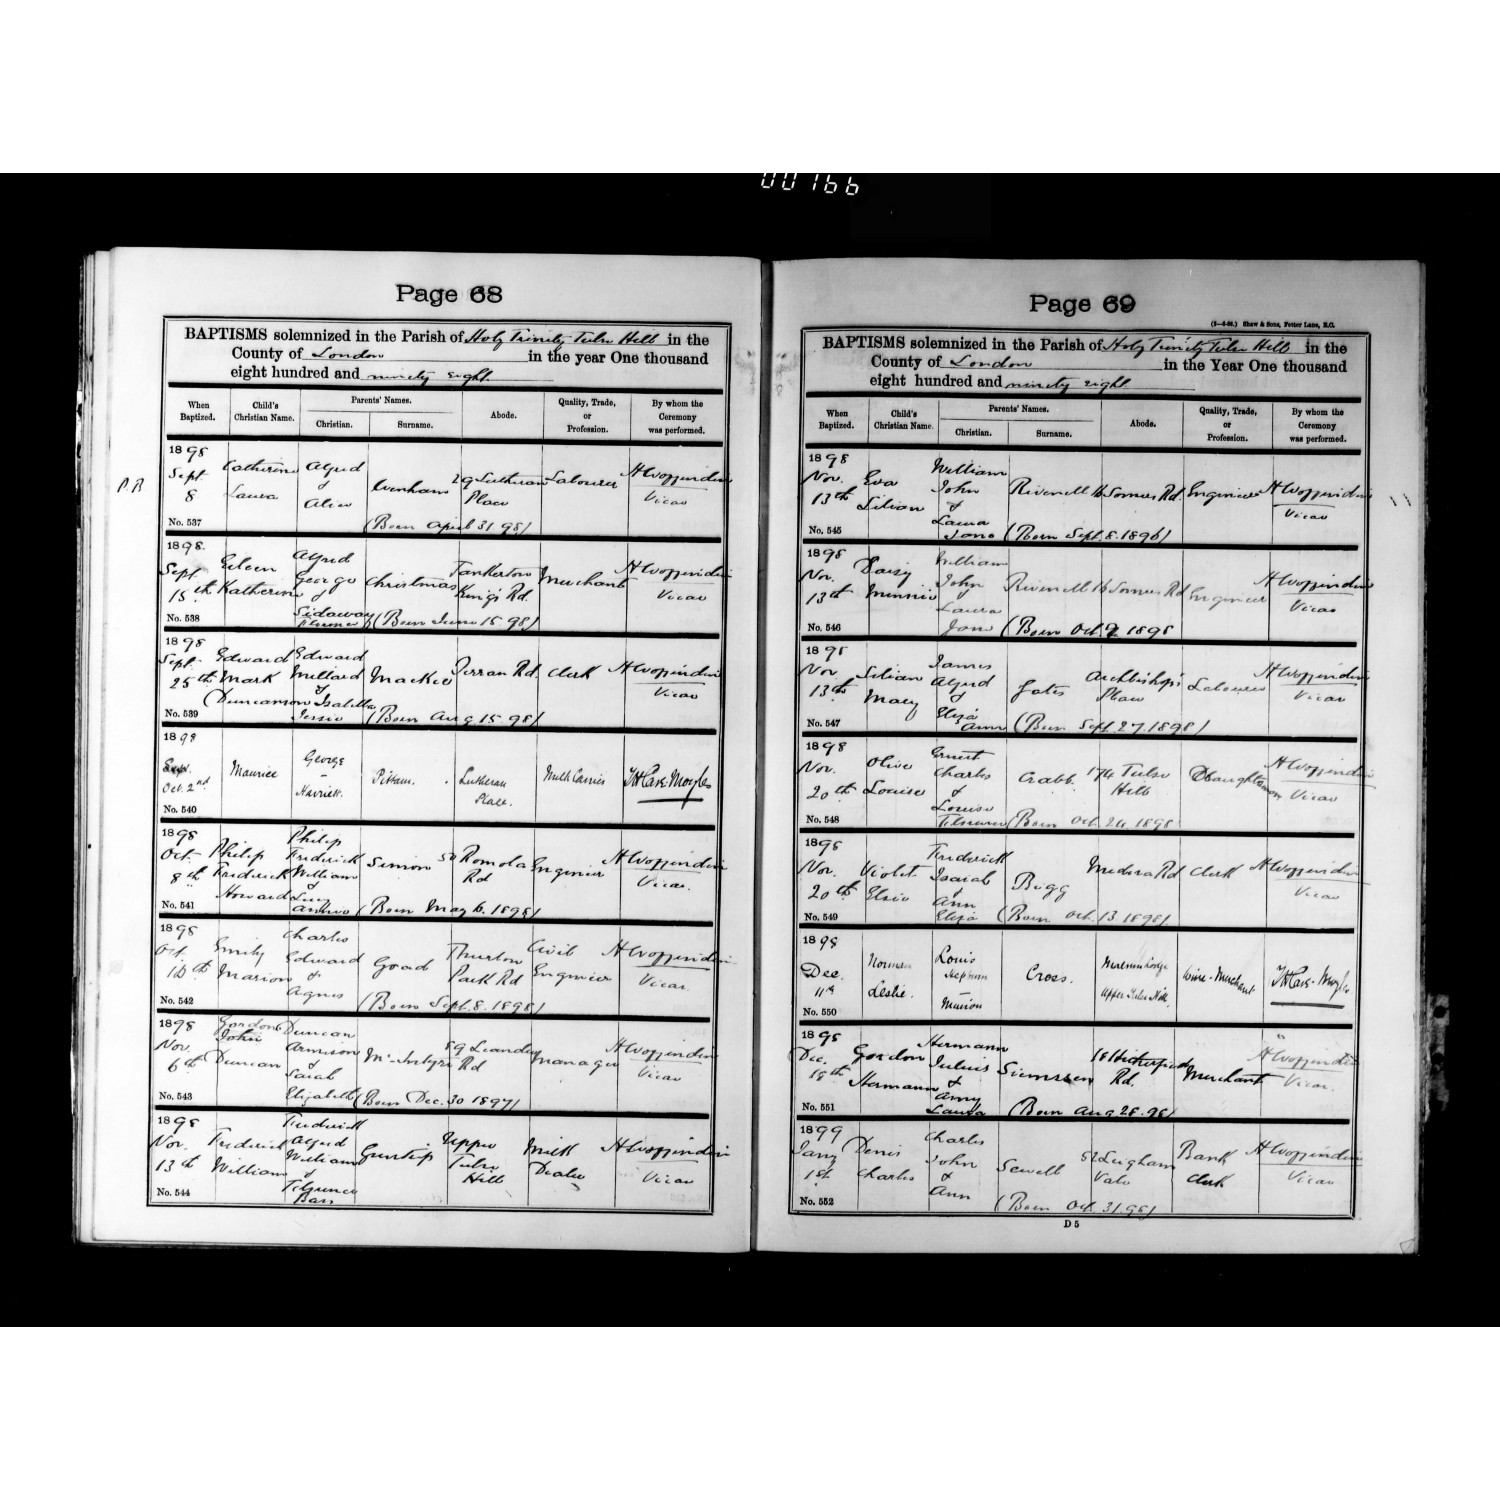 00766
Page 68
BAPTISMS solemnized in the Parish of Holy Trinity Tulse Hill in the
County of London in the year One thousand
eight hundred and ninety eight
When Baptized.
Child's Christian Name.
Parents' Names.
Christian.
Surname.
Abode.
Quality, Trade, or Profession.
By whom the Ceremony was performed.
1898
Sept. 8
No. 537
Catherine Laura
Alfred & Alice
29 Lutheran Place
Labourer
Vicar
(Born April 31. 98)
1898.
Sept. 15th
No. 538
Eileen Katherine
Alfred George & Sidaway Florence
Christmas
Tankerton King's Rd.
Merchant
Vicar
(Born June 15. 98)
1898
Sept. 25th
No. 539
Edward Mark Duncanson
Edward Millard & Isabella Jessie
Mackie
Perran Rd.
Clerk
Vicar
(Born Aug 15. 98)
1898
Oct. 2nd
No. 540
Maurice
George - Harriett.
Pitham.
Lutheran Place.
Milk Carrier
1898
Oct. 8th
No. 541
Philip Frederick Howard
Philip Frederick William & Lucy Annie
Simon
50 Romola Rd
Engineer
Vicar.
(Born May 6. 1898)
1898
Oct. 16th
No. 542
Emily Marion
Charles Edward & Agnes
Goad
Thurlow Park Rd
Civil Engineer
Vicar.
(Born Sept. 8. 1898)
1898
Nov. 6th
No. 543
Gordon John Duncan
Duncan Armison & Sarah Elizabeth
McIntyre
89 Leander Rd
Manager
Vicar
(Born Dec. 30 1897)
1898
Nov. 13th
No. 544
Frederick William
Frederick Alfred William & Florence
Gunstip
Upper Tulse Hill
Milk Dealer
Vicar
Page 69
Shaw & Sons, Fetter Lane, E.C.
BAPTISMS solemnized in the Parish of Holy Trinity Tulse Hill in the
County of London in the Year One thousand
eight hundred and ninety eight
When Baptized.
Child's Christian Name.
Parents' Names.
Christian.
Surname.
Abode.
Quality, Trade, or Profession.
By whom the Ceremony was performed.
1898
Nov. 13th
No. 545
Eva Lilian
William John & Laura Jane
Rivenell
16 Somers Rd.
Engineer
Vicar
(Born Sept. 8. 1896)
1898
Nov. 13th
No. 546
Daisy Minnie
William John & Laura Jane
Rivenell
16 Somers Rd
Engineer
Vicar
(Born Oct. 9 1898
1898
Nov. 13th
No. 547
Lilian Mary
James Alfred & Eliza Ann
Gates
Archbishop's Place
Labourer
Vicar
(Born Sept. 27. 1898)
1898
Nov. 20th
No. 548
Olive Louise
Ernest Charles & Louise Florence
Crabb.
174 Tulse Hill
Draughtsman
Vicar
(Born Oct. 24. 1898
1898
Nov. 20th
No. 549
Violet Elsie
Frederick Isaiah & Ann Eliza
Bigg
Medora Rd
Clerk
Vicar
(Born Oct. 13 1898)
1898
Dec. 11th
No. 550
Norman Leslie.
Louis Stephen - Marion
Cross.
Upper Tulse Hill.
Wine-Merchant
1898
Dec. 18th
No. 551
Gordon Hermann
Hermann Julius & Amy Laura
Siemssen
Rd.
Merchant
Vicar.
(Born Aug 28. 98)
1899
Jany 1st
No. 552
Denis Charles
Charles John & Ann
Sewell
52 Leigham Vale
Bank Clerk
Vicar
(Born Oct. 31. 98)
D 5